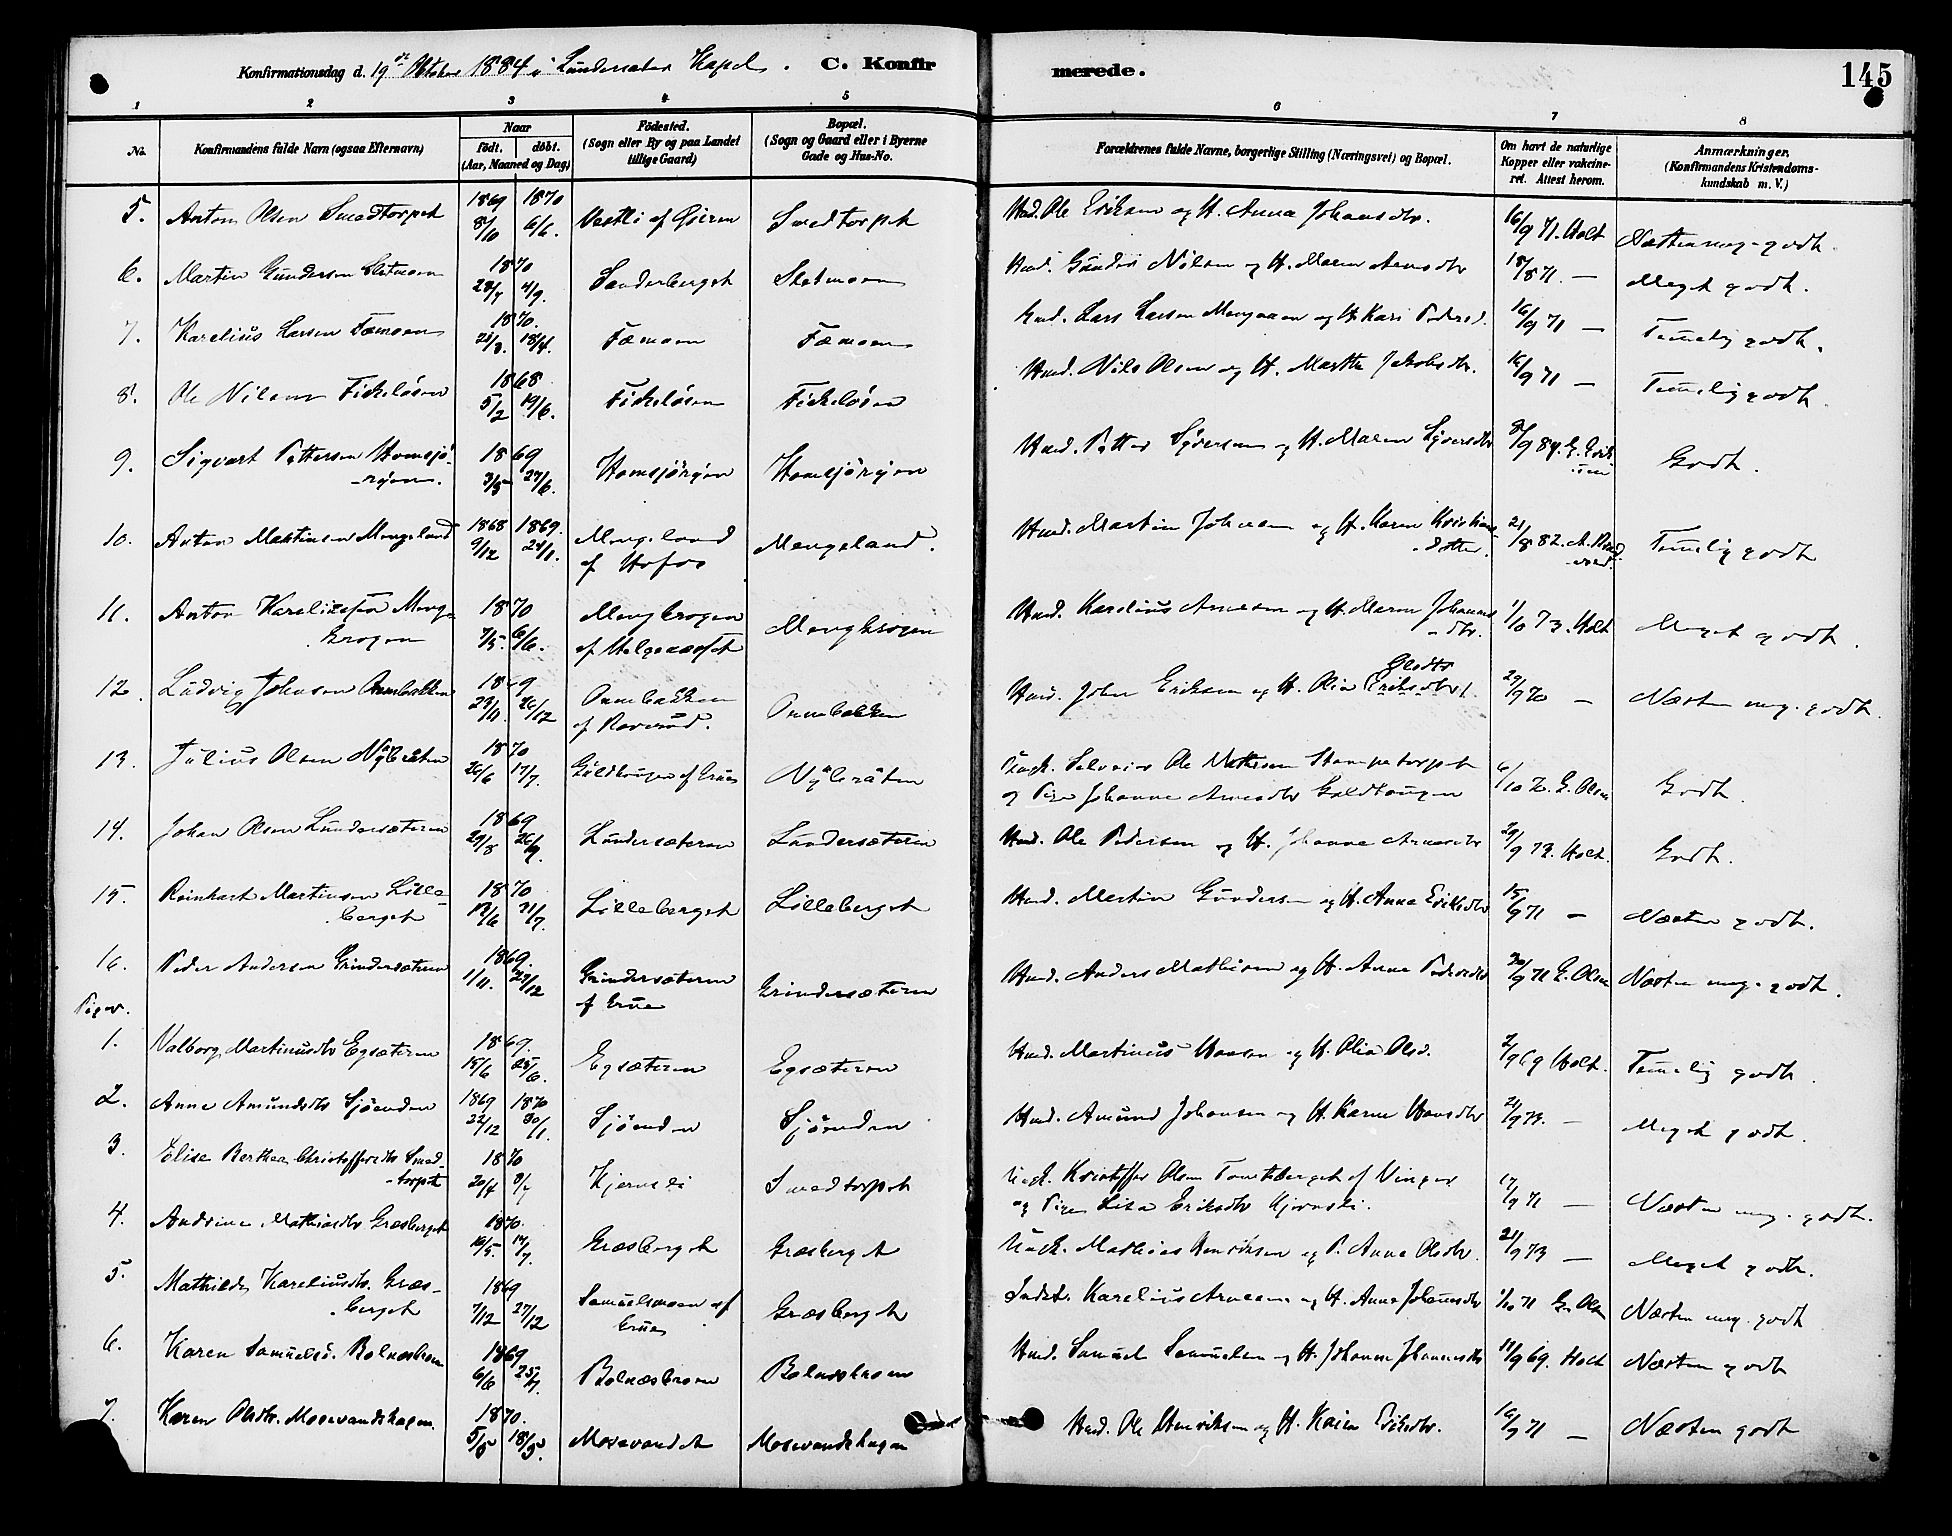 Konfirmationsdag d. 19de Oktober 1884 i Lundersæter Kapel. C. Konfirmerede. 145
1 2 3 4 5 6 7 8
No. Konfirmandens fulde Navn (ogsaa Efternavn) Naar født. døbt. (Aar, Maaned og Dag) Fødested. (Sogn eller By og paa Landet tillige Gaard) Bopæl. (Sogn og Gaard eller i Byerne Gade og Hus-No. Forældrenes fulde Navne, borgerlige Stilling (Næringsvei) og Bopæl. Om havt de naturlige Kopper eller vakcineret. Attest herom. Anmærkninger. (Konfirmandens Kristendomskundskab m. V.)
5. Anton Olsen Smedtorpet 1869 8/10 1870 6/6. Vestli af Gjeren Smedtorpet Hmd. Ole Eriksen og H. Anna Johansdtr. 16/9 71. Holt Næsten meg. godt.
6. Martin Gundersen Sletmoen 1870 28/7 4/9. Sanderberget Sletmoen Hmd. Gunder Nilsen og H. Maren Arnesdtr 18/8 71. — Meget godt.
7. Karelius Larsen Fæmoen 1870. 21/3. 18/4. Fæmoen Fæmoen Lars Larsen og H. Kari Pedersd. 16/9 71 — Temelig godt.
8. Ole Nilsen Fiskeløsen 1868 5/2 19/6. Fiskeløsen Fiskeløsen Hmd. Nils Olsen og H. Marthe Jakobsdtr. 16/9 71 — Temelig godt.
9. Sigvart Pettersen Homsjørøjen. 1869 3/5 27/6. Homsjørøjen Homsjørøjen Hmd. Petter Syversen og H. Maren Syversdtr 8/9 84. Godt.
10. Anton Martinsen Mengeland 1868 9/12 1869. 24/1. Mengeland af Hofos Mengeland. Hmd. Martin Johnsen og H. Karen Kristiansdatter. 21/8 82. Temelig godt
11. Anton Kareliussen Mengkrogen 1870 7/5. 6/6. Mengkrogen af Helgenæsset Mengkrogen Hmd. Karelius Arnesen og H. Maren Johannesdtr. 1/10 73. Holt Meget godt.
12. Ludvig Johnsen Onnebakken 1869 29/11. 26/12 Onnebakken af Roverud. Onnebakken Hmd. John Eriksen og H. Olia Eriksdtr. Olsdtr 29/9 70 — Næsten meg. godt.
13. Julius Olsen Nybråten 1870 26/6 17/7. Guldhaugen af Grue Nybråten Ungk. Selveier Ole Mathisen Stompetorpet og Pige Johanne Arnesdtr Guldhaugen 6/10 72. E. Olsen Godt.
14. Johan Olsen Lundersæteren 1869 29/8 26/9. Lundersæteren Lundersæteren Hmd. Ole Pedersen og H. Johanne Arnesdtr 29/9 73. Holt. Godt.
15. Reinhart Martinsen Lilleberget 1870 12/6 31/7. Lilleberget Lilleberget Hmd. Martin Gundersen og H. Anna Eriksdtr 15/9 71 — Næsten godt.
16. Peder Andersen Grindersæteren 1869. 1/11. 27/12 Grindersæteren af Grue Grindersæteren Hmd. Anders Mathisen og H. Anne Pedersdtr 30/9 71 E. Olsen Næsten meg. godt.
Piger.
1. Valborg Martinusdtr Egsæteren 1869. 15/6 25/6. Egsæteren Egsæteren Hmd. Martinus Hansen og H. Olia Olsd. 2/9 69 Holt. Temelig godt.
2. Anne Amundsdtr Sjøenden 1869 22/12 1870 30/1. Sjøenden Sjøenden Hmd. Amund Johansen og H. Karen Hansdtr 21/9 73. — Meget godt.
3. Elise Berthea Christoffersdtr Smedtorpet 1870 20/4 3/7 Kjernsli Smedtorpet Ungk. Kristoffer Olsen af Vinger og Pige Lisa Eriksdtr Kjernsli. 17/9 71 — Næsten meg. godt.
4. Andrine Mathiasdtr Græsberget 1870. 16/5. 17/7. Græsberget Græsberget Ungk. Mathias Henriksen og P. Anne Olsdtr. 21/9 73 — Meget godt.
5. Mathilde Kareliusdtr. Græsberget 1869 7/12 27/12 Samuelsmoen af Grue Græsberget Karelius Arnesen og H. Anne Johannesdtr 1/10 71 E. Olsen Næsten meg. godt
6. Karen Samuelsd. Bolnæskroen 1869 6/6 25/7. Bolnæskroen Bolnæskroen Hmd. Samuel Samuelsen og H. Johanne Johannesdtr 11/9 69. Holt Næsten godt
7. Karen Olsdtr. Mosevandshagen. 1870. 5/5 18/5. Mosevandet Mosevandshagen Hmd. Ole Henriksen og H. Karen Eriksdtr. 16/9 71 — Næsten godt